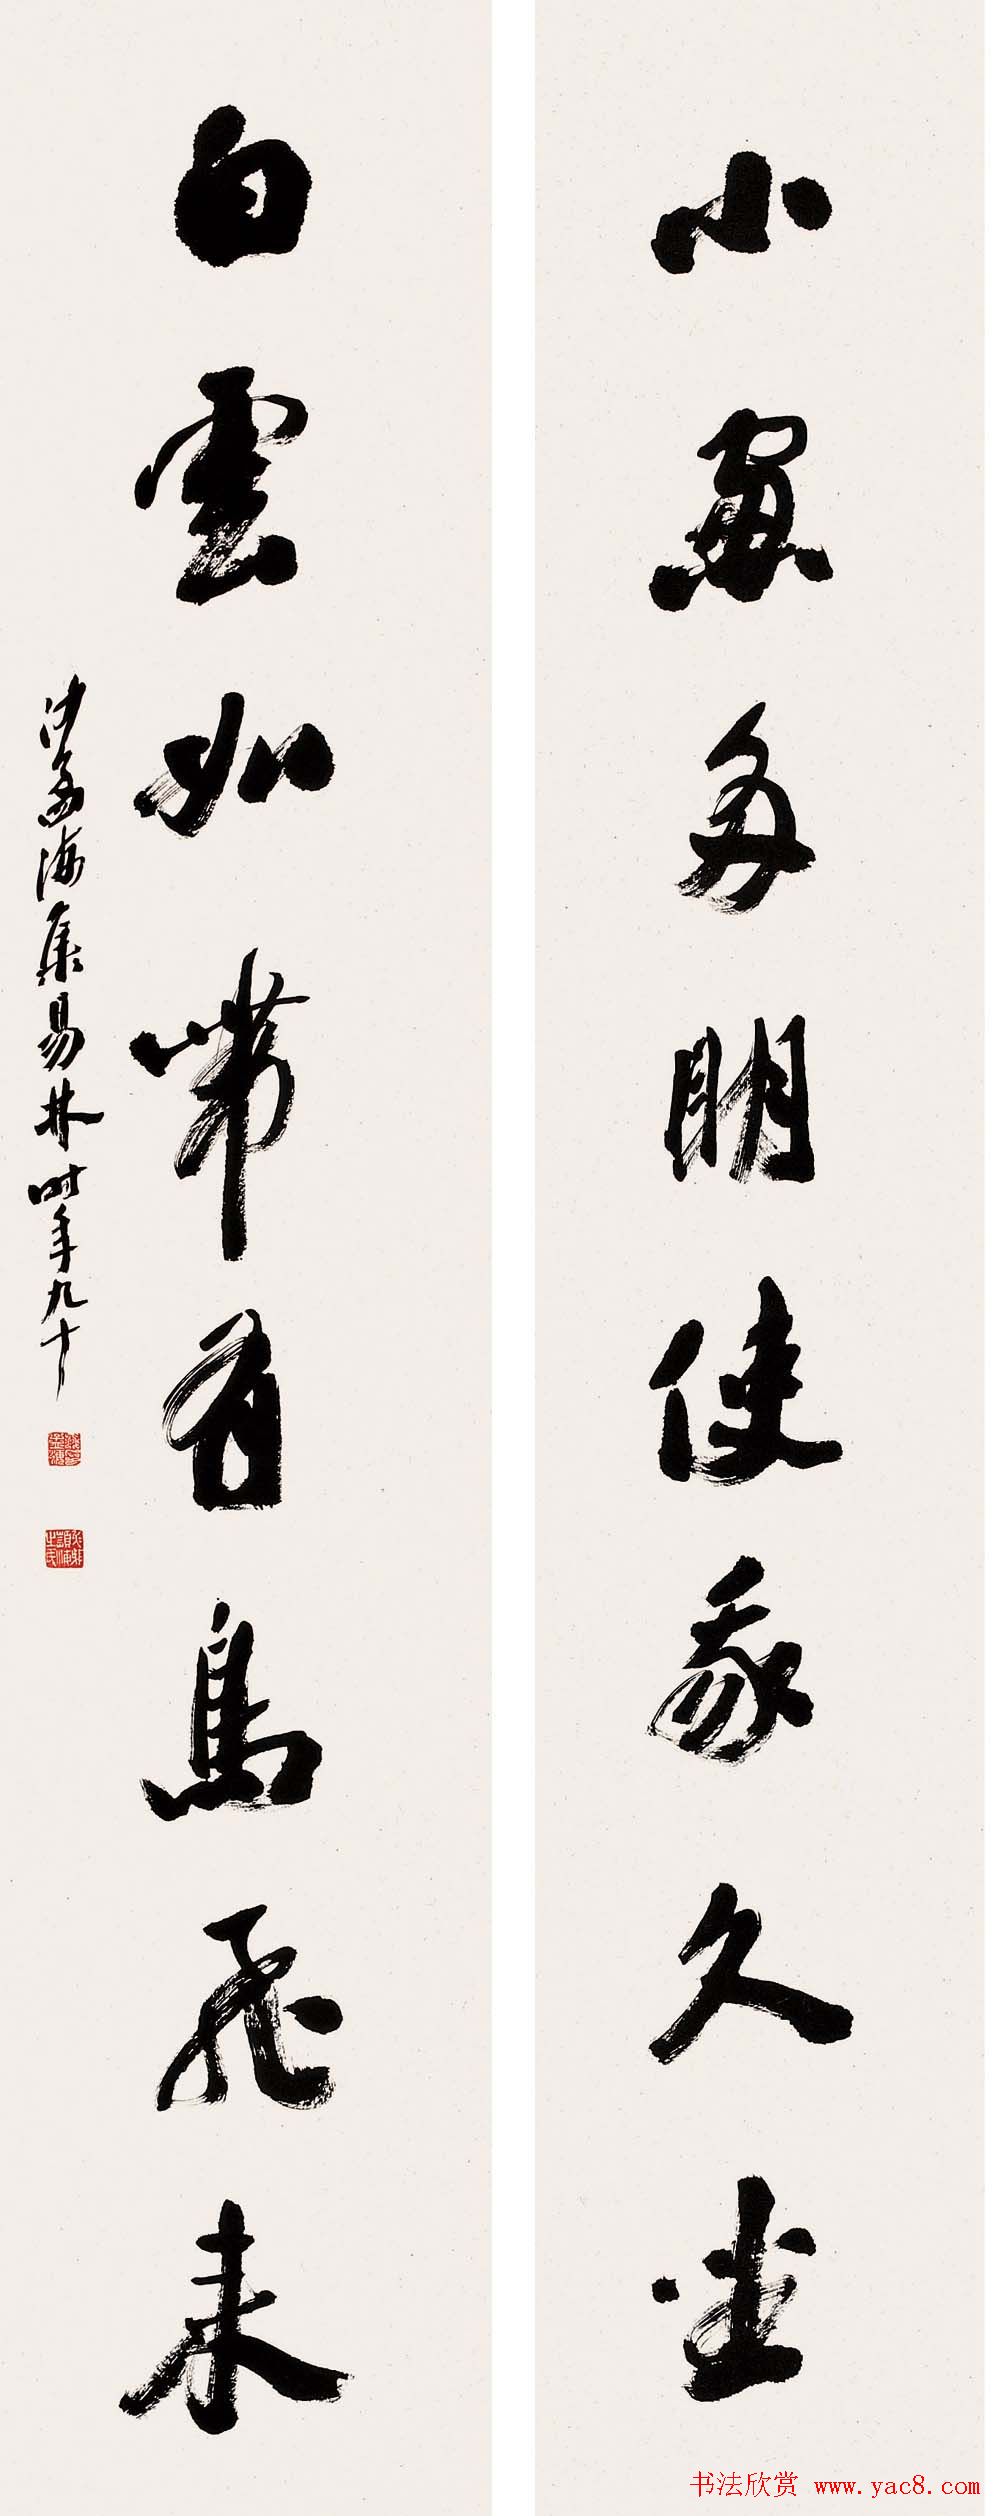 小窗多明使我久坐
白雲如帶有鳥飛來
沙孟海集易林時年九十
书法欣赏 www.yac8.com